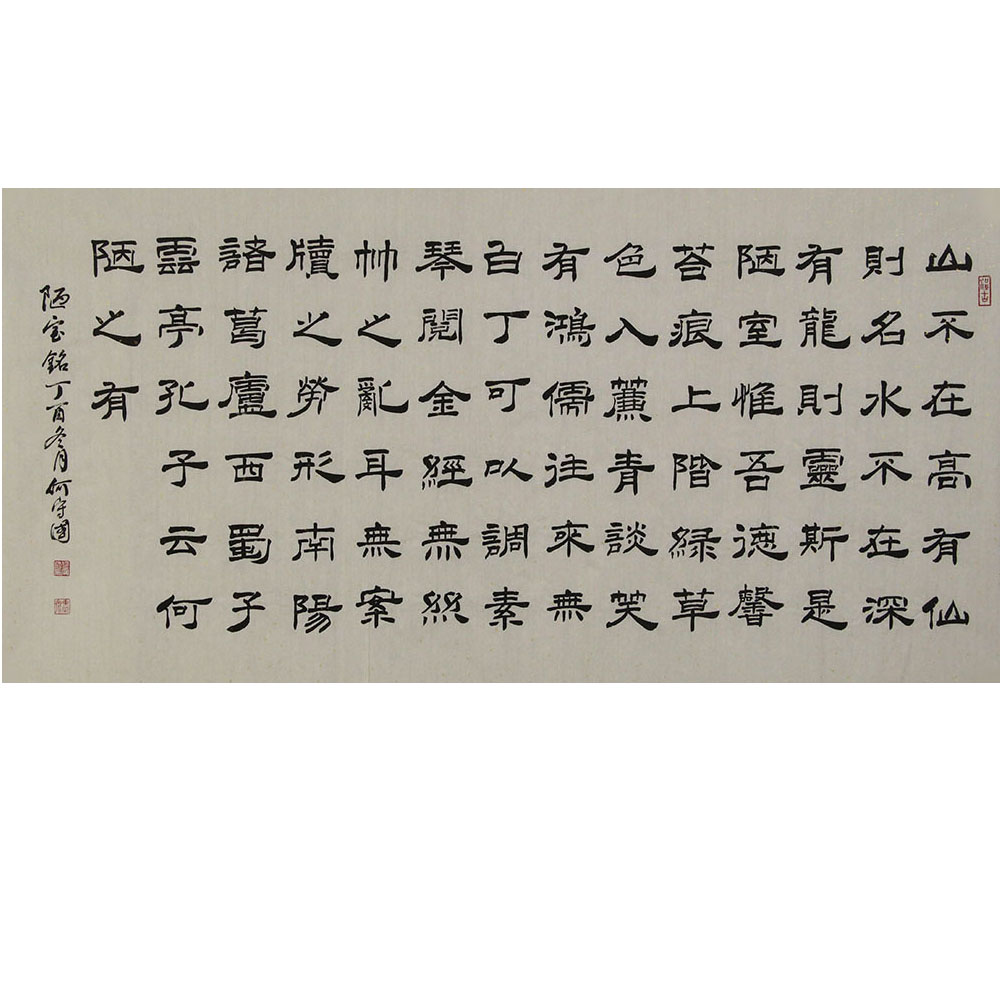 山不在高有仙
則名水不在深
有龍則靈斯是
陋室惟吾德馨
苔痕上階綠草
色入薰青談笑
有鴻儒往來無
白丁可以調素
琴閱金經無絲
竹之亂耳無案
牘之勞形南陽
諸葛廬西蜀子
雲亭孔子云何
陋之有
陋室銘丁酉冬月何守國